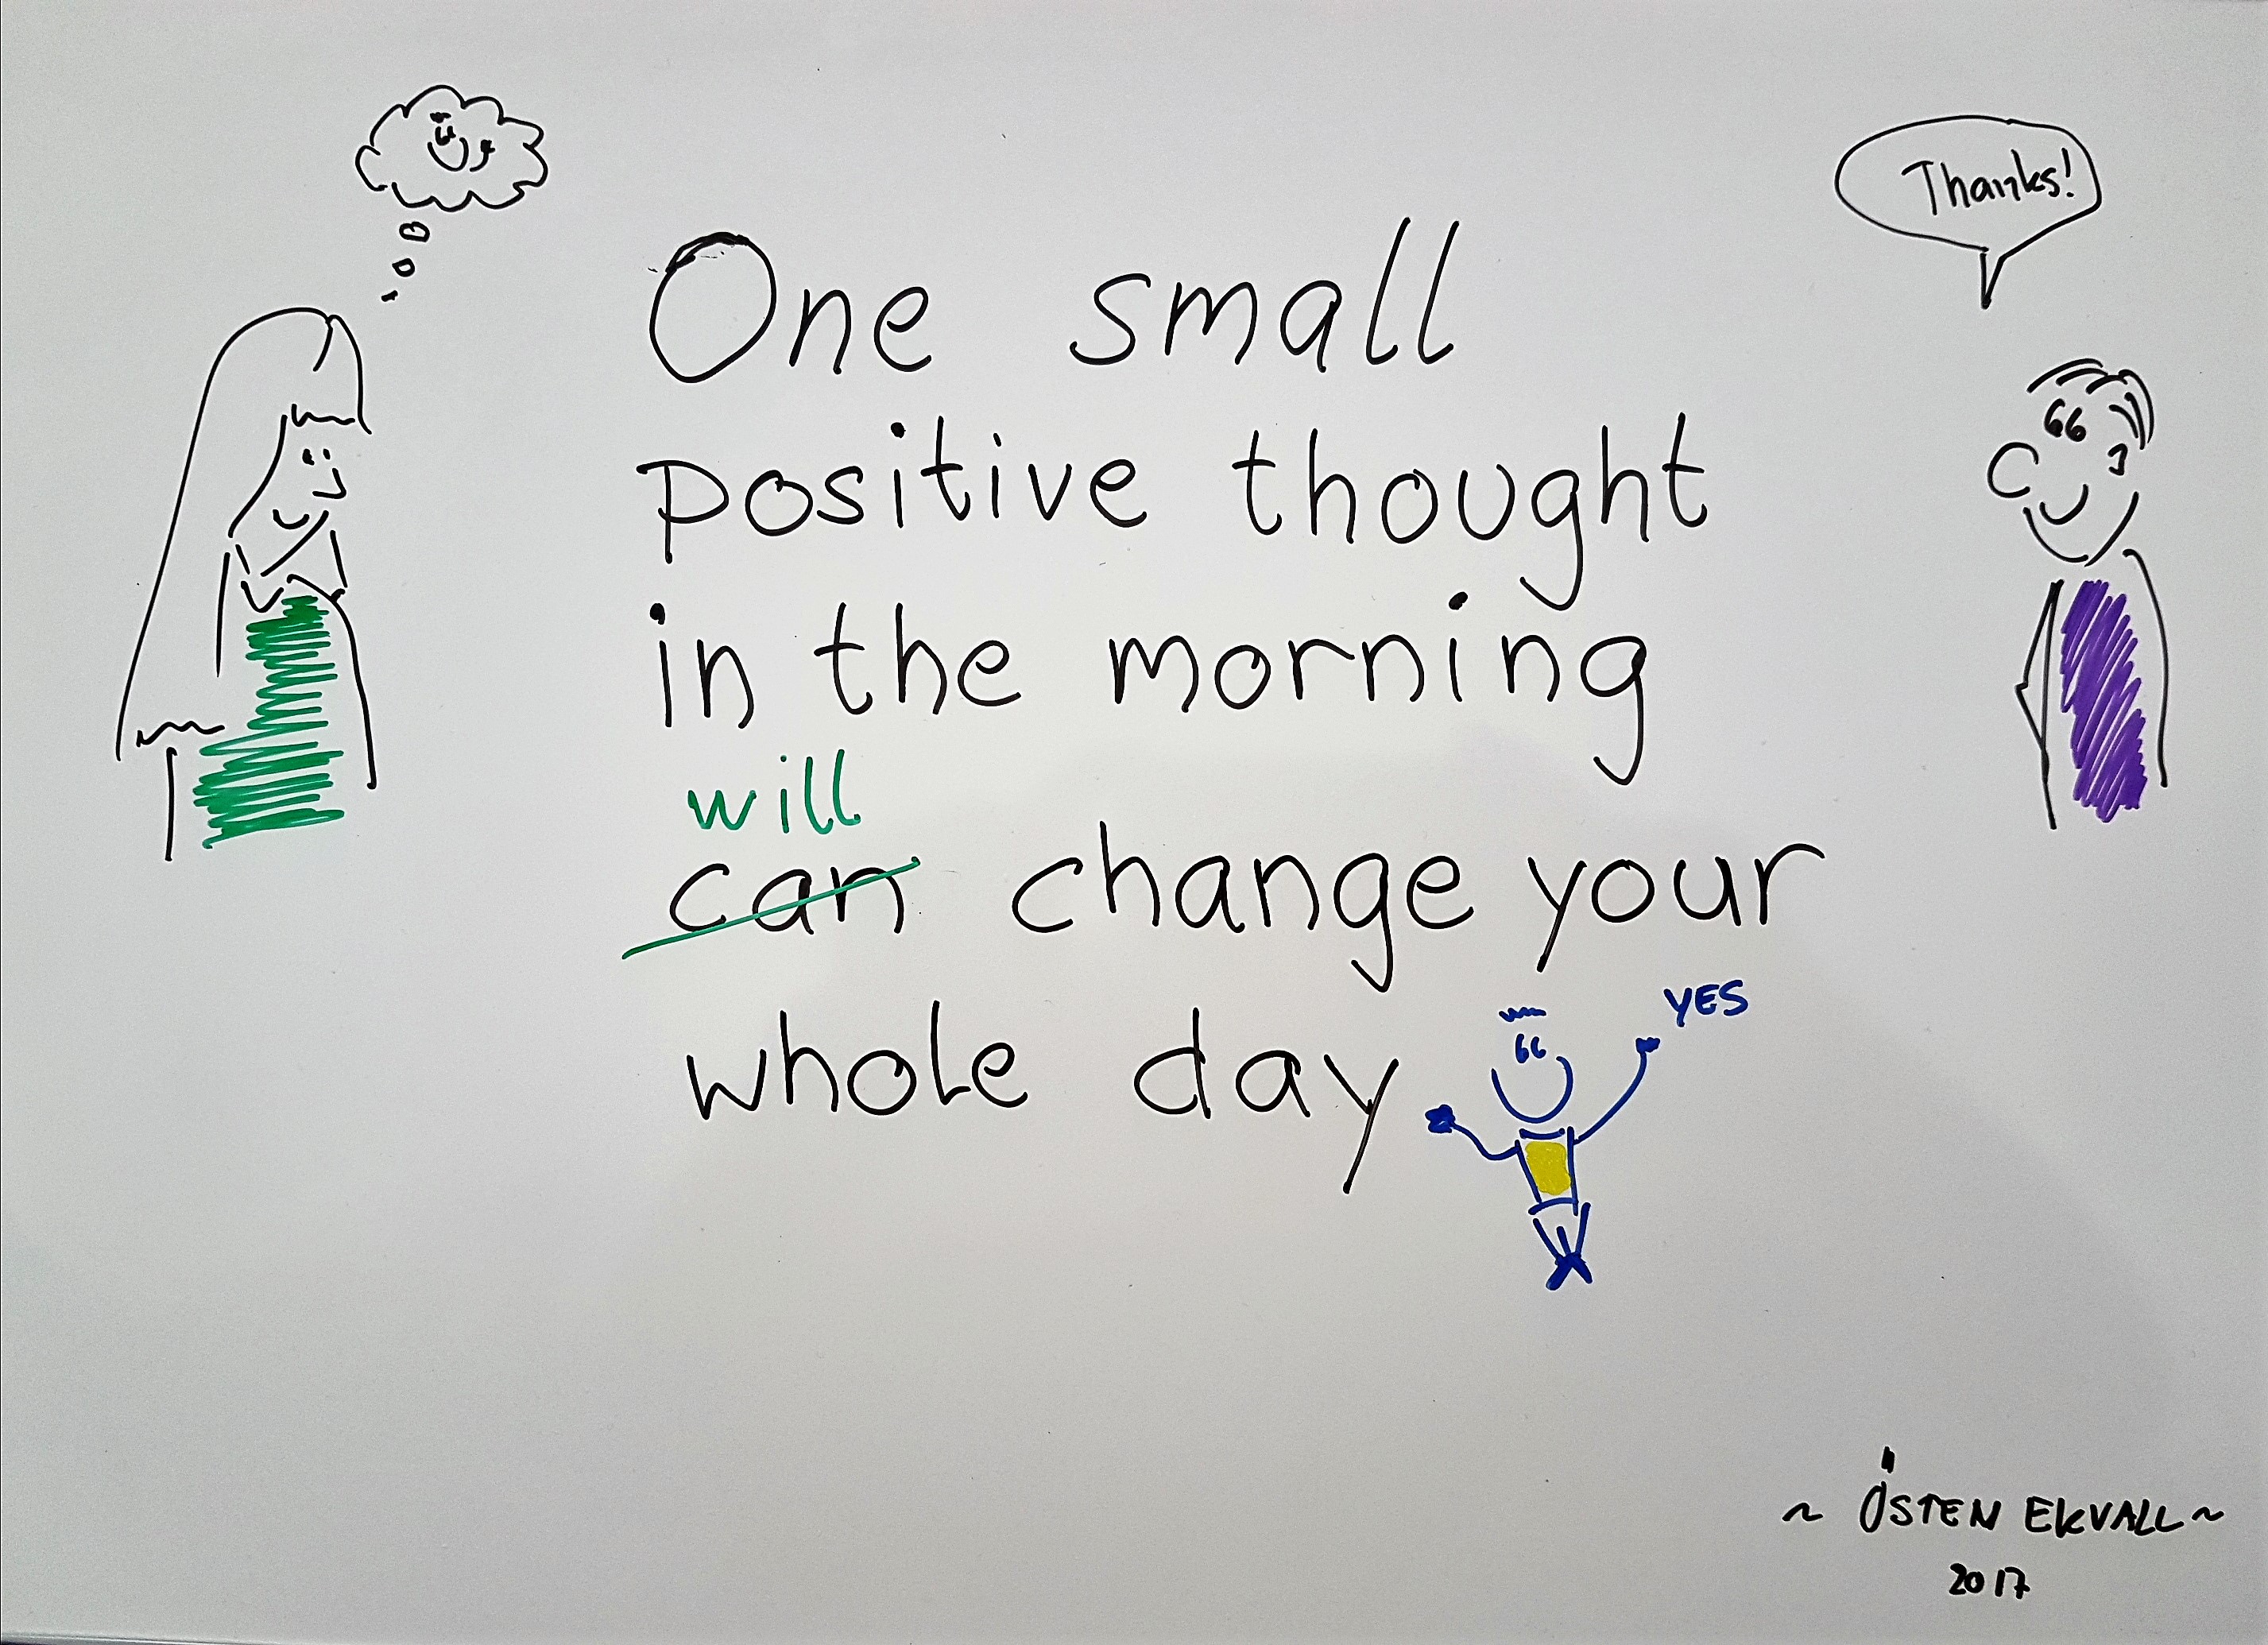 Thanks!
One small
positive thought
in the morning
will
can change your
whole day
YES
~ ÖSTEN EKVALL ~
2017